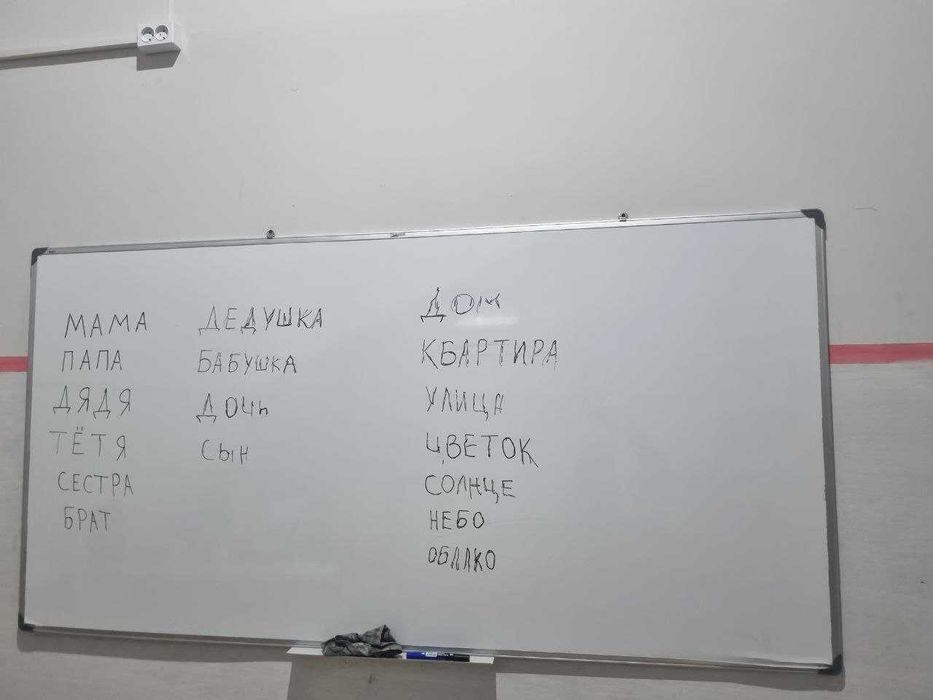 МАМА
ПАПА
ДЯДЯ
ТЁТЯ
СЕСТРА
БРАТ
ДЕДУШКА
БАБУШКА
ДОЧЬ
СЫН
ДОМ
КБАРТИРА
УЛИЦА
ЦВЕТОК
СОЛНЦЕ
НЕБО
ОБЛАКО